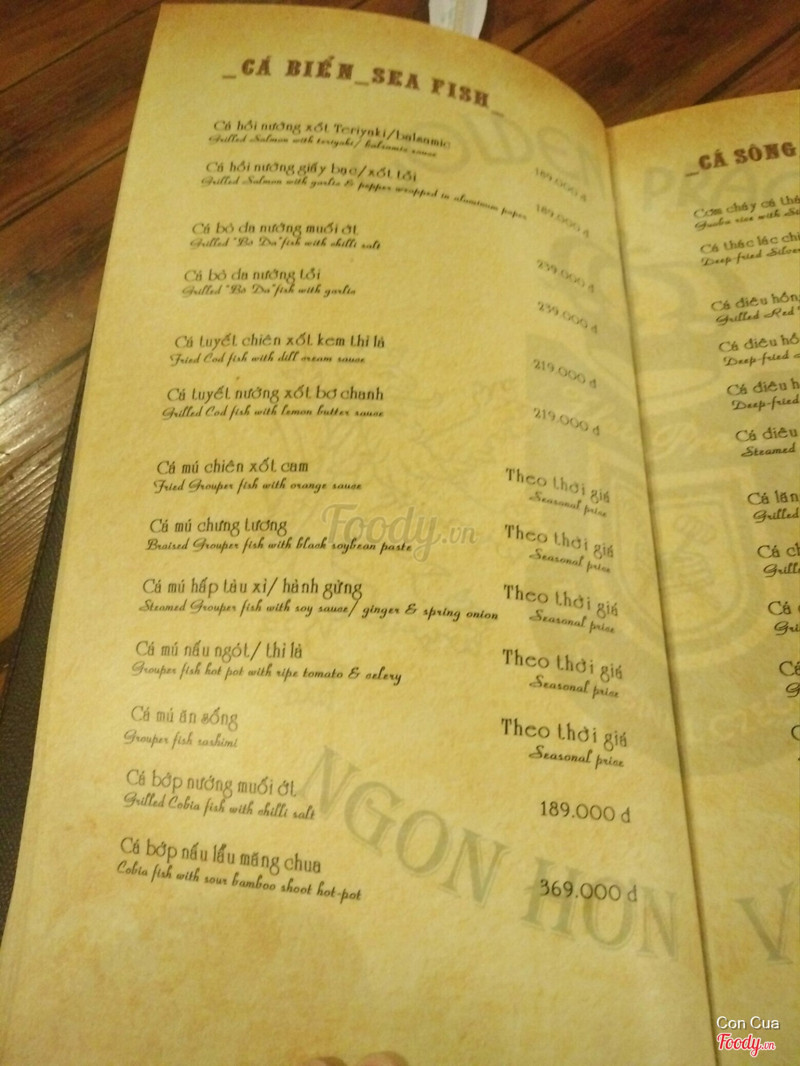 _CÁ BIỂN_SEA FISH_
Cá hồi nướng xốt Teriyaki/balsamic
Grilled Salmon with teriyaki/ balsamic sauce
189.000 đ
Cá hồi nướng giấy bạc/xốt tỏi
Grilled Salmon with garlic & pepper wrapped in aluminum paper
189.000 đ
Cá bò da nướng muối ớt
Grilled "Bò Da" fish with chilli salt
239.000 đ
Cá bò da nướng tỏi
Grilled "Bò Da" fish with garlic
239.000 đ
Cá tuyết chiên xốt kem thì là
Fried Cod fish with dill cream sauce
219.000 đ
Cá tuyết nướng xốt bơ chanh
Grilled Cod fish with lemon butter sauce
219.000 đ
Cá mú chiên xốt cam
Fried Grouper fish with orange sauce
Theo thời giá
Seasonal price
Cá mú chưng tương
Braised Grouper fish with black soybean paste
Theo thời giá
Seasonal price
Cá mú hấp tàu xì/ hành gừng
Steamed Grouper fish with soy sauce/ ginger & spring onion
Theo thời giá
Seasonal price
Cá mú nấu ngót/ thì là
Grouper fish hot pot with ripe tomato & celery
Theo thời giá
Seasonal price
Cá mú ăn sống
Grouper fish sashimi
Theo thời giá
Seasonal price
Cá bớp nướng muối ớt
Grilled Cobia fish with chilli salt
189.000 đ
Cá bớp nấu lẩu măng chua
Cobia fish with sour bamboo shoot hot-pot
369.000 đ
NGON HƠN V
_CÁ SÔNG
Cơm cháy cá
Cá thác lác
Deep-fried
Cá diêu hồng
Grilled Red
Cá diêu
Deep-fried
Cá diêu
Deep-fried
Cá diêu
Steamed
Cá lăn
Grilled
Foody.vn
Con Cua
Foody.vn